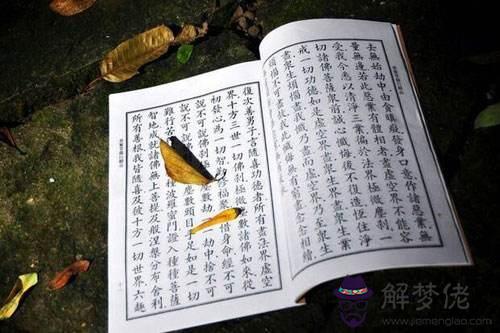 去無始劫中由貪瞋癡發身口意作諸惡業無
量無邊若此惡業有體相者盡虛空界不能容
受我今悉以清淨三業徧於法界極微塵剎一
切諸佛菩薩眾前誠心懺悔後不復造恆住淨
戒一切功德如是虛空界盡眾生界盡眾生業
盡眾生煩惱盡我懺乃盡而虛空界乃至眾生
煩惱不可盡故我此懺悔無有窮盡念念相續
復次善男子言隨喜功德者所有盡法界虛空
界十方三世一切佛剎極微塵數諸佛如來從
初發心為一切智修福聚不惜身命經不可
說不可說佛剎數劫一劫中捨不可
說不可說塵數頭目手足如是一切
難行苦種波羅蜜門證入種種菩薩
智地成就諸佛無上菩提及般涅槃分布舍利
所有善根我皆隨喜及彼十方一切世界六趣
解梦佬
www.jiemenglao.com